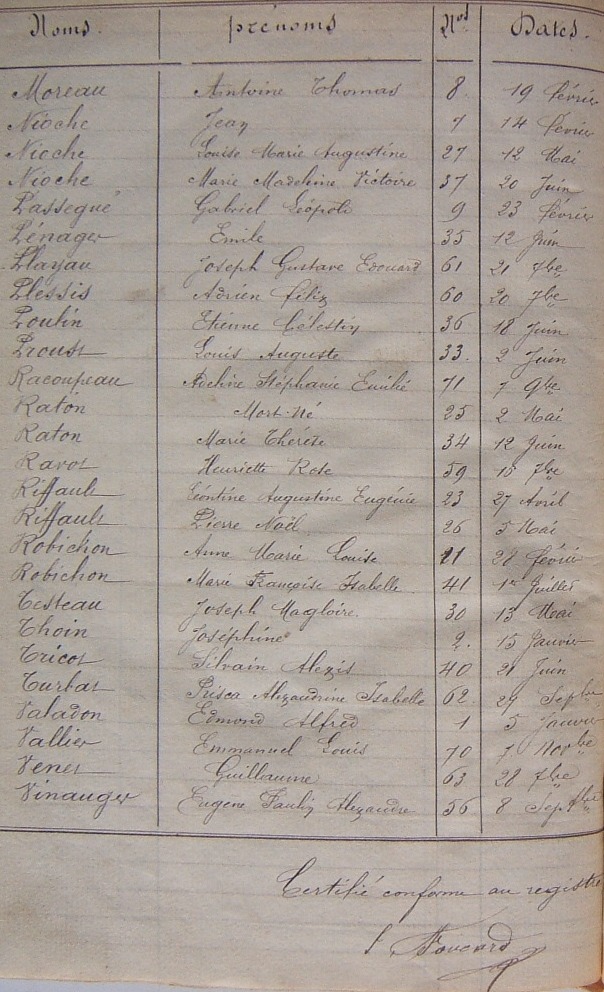 Noms. prénoms Nos Dates.
Moreau Antoine Thomas 8. 19 février
Nioche Jean 7 14 février
Nioche Louise Marie Augustine 27 12 Mai
Nioche Marie Madeleine Victoire 37 20 Juin
Passegué Gabriel Léopold 9 23 février
Pénager Emile 35 12 Juin
Joseph Gustave Edouard 61 21 7bre
Plessis Adrien Félix 60 20 7bre
Poulin Etienne Célestin 36 18 Juin
Proust Louis Auguste 33. 2 Juin
Racoupeau Stéphanie Emilié 71 7 9bre
Raton Mort-Né 25 2 Mai
Raton Marie Thérèse 34 12 Juin
Ravot Henriette Rose 59 7bre
Riffault Léontine Augustine Eugénie 23 27 Avril
Riffault Pierre Noël 26 5 Mai
Robichon Anne Marie Louise 28 février
Robichon Marie Françoise Isabelle 41 1er Juillet
Testeau Joseph Magloire. 30 13 Mai
Thoin Joséphine 2. 15 Janvier
Tricot Silvain Alexis 40 21 Juin
Turbat Prisca Alexandrine Isabelle 62. 24 Septbre
Valadon Edmond Alfred 1 5 Janvier
Vallier Emmanuel Louis 70 7 Novbre
Venet Guillaume 63 28 7bre
Vinauger Eugene Paulin Alexandre 56 8 Septbre
Certifié conforme au registre